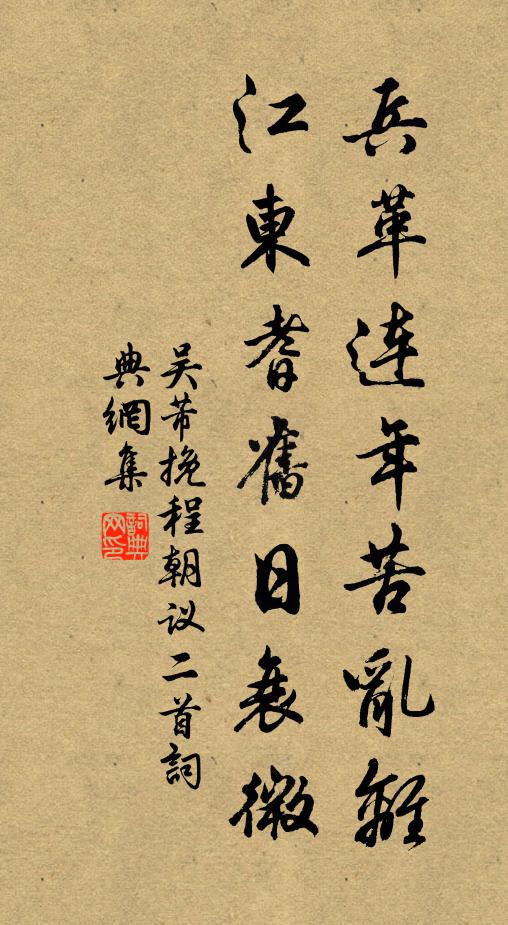 兵革連年苦亂離
江東耆舊日衰微
吴芾挽程朝议二首詞
典網集
詞典
网印